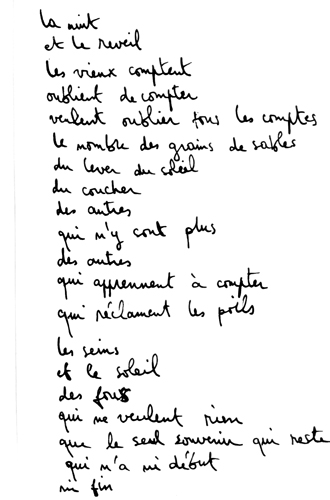 la nuit
et le reveil
les vieux comptent
oublient de compter
veulent oublier tous les comptes
le nombre des grains de sables
du lever du soleil
du coucher
des autres
qui n'y sont plus
des autres
qui apprennent à compter
qui réclament les poils
les seins
et le soleil
des fous
qui ne veulent rien
que le seul souvenir qui reste
qui n'a ni début
ni fin